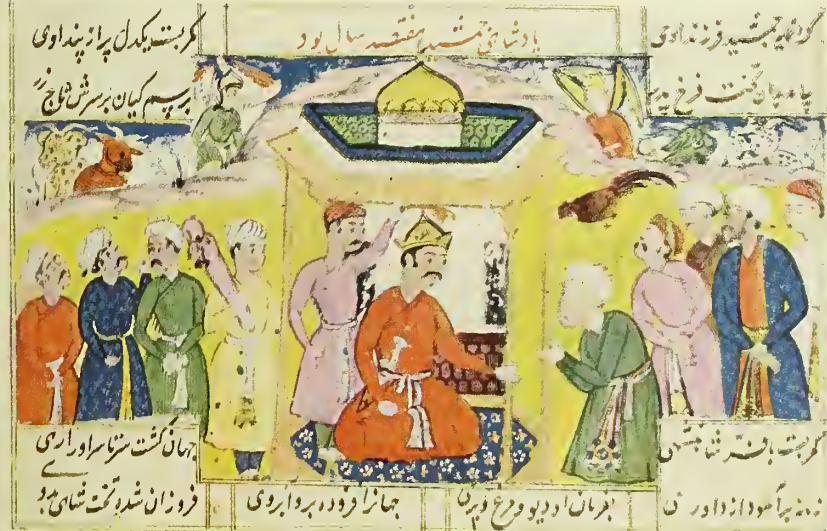 پادشاهی جمشید هفتصد سال بود
گرانمایه جمشید فرزند اوی
کمر بست یکدل پر از پند اوی
فرخ پدر
برسم کیان بر سرش تاج زر
کمر بست با فر شاهنشهی
جهان گشت سرتاسر او را رهی
زمانه برآسود از داوری
بفرمان او دیو و مرغ و پری
جهانرا فزوده بدو آبروی
فروزان شده تخت شاهی بدو